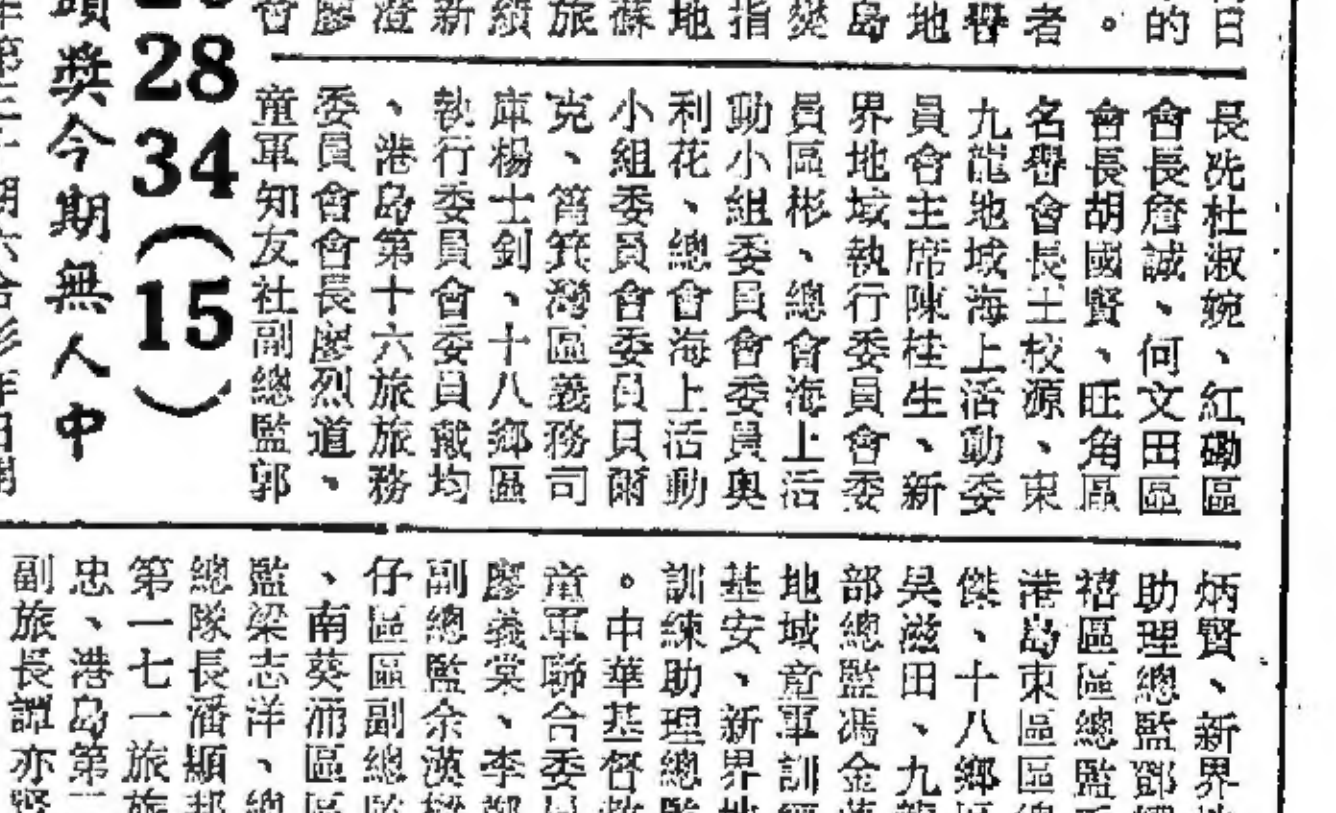 日
的
。
者
譽
地
島
燮
指
地
蘇
旅
績
新
澄
廖
會
長冼杜淑婉、紅磡區
會長詹誠、何文田區
會長胡國賢、旺角區
名譽會長王校源、東
九龍地域海上活動委
員會主席陳桂生、新
界地域執行委員會委
員區彬、總會海上活
動小組委員會委員奧
利花、總會海上活動
小組委員會委員貝爾
克、筲箕灣區義務司
庫楊士釗、十八鄉區
執行委員會委員戴均
、港島第十六旅旅務
委員會會長廖烈道、
童軍知友社副總監郭
28
34
(15)
頭獎今期無人中
炳賢、新界
助理總監鄧
禧區區總監
港島東區區
傑、十八鄉
吳滋田、九龍
部總監馮金
地域童軍訓
基安、新界地
訓練助理總監
。中華基督教
童軍聯合委員
廖義棠、李鄭
副總監余漢
仔區區副總監
、南葵涌區區
監梁志洋、總
總隊長潘顯邦
第一七一旅旅
忠、港島第
副旅長譚亦賢